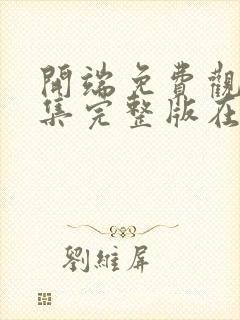 開端免費觀
集完整版在
劉維屏